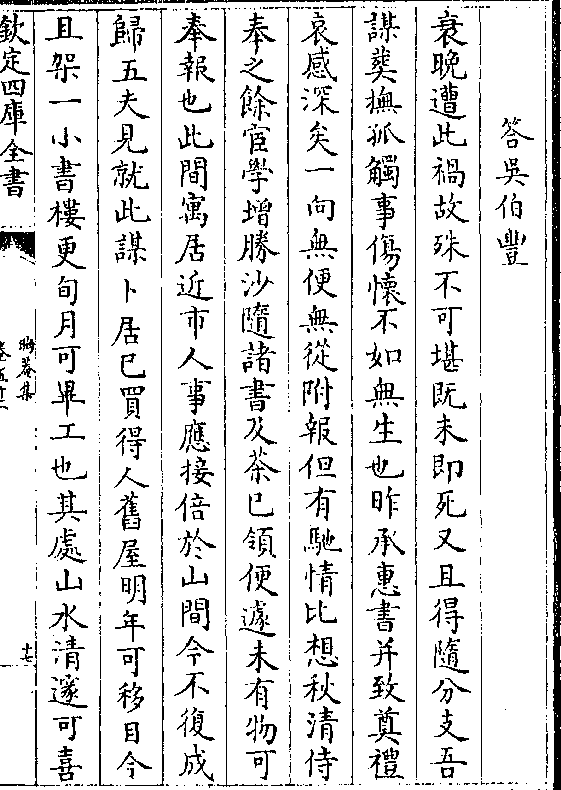 答吳伯豐
衰晚遭此禍故殊不可堪既未即死又且得隨分支吾
謀葬撫孤觸事傷懷不如無生也昨承惠書并致奠禮
哀感深矣一向無便無從附報但有馳情比想秋清侍
奉之餘宦學增勝沙隨諸書及茶已領便遽未有物可
奉報也此間寓居近市人事應接倍於山間今不復成
歸五夫見就此謀卜居已買得人舊屋明年可移目今
且架一小書樓更旬月可畢工也其處山水清邃可喜
欽定四庫全書
晦菴集
卷五十二
十七